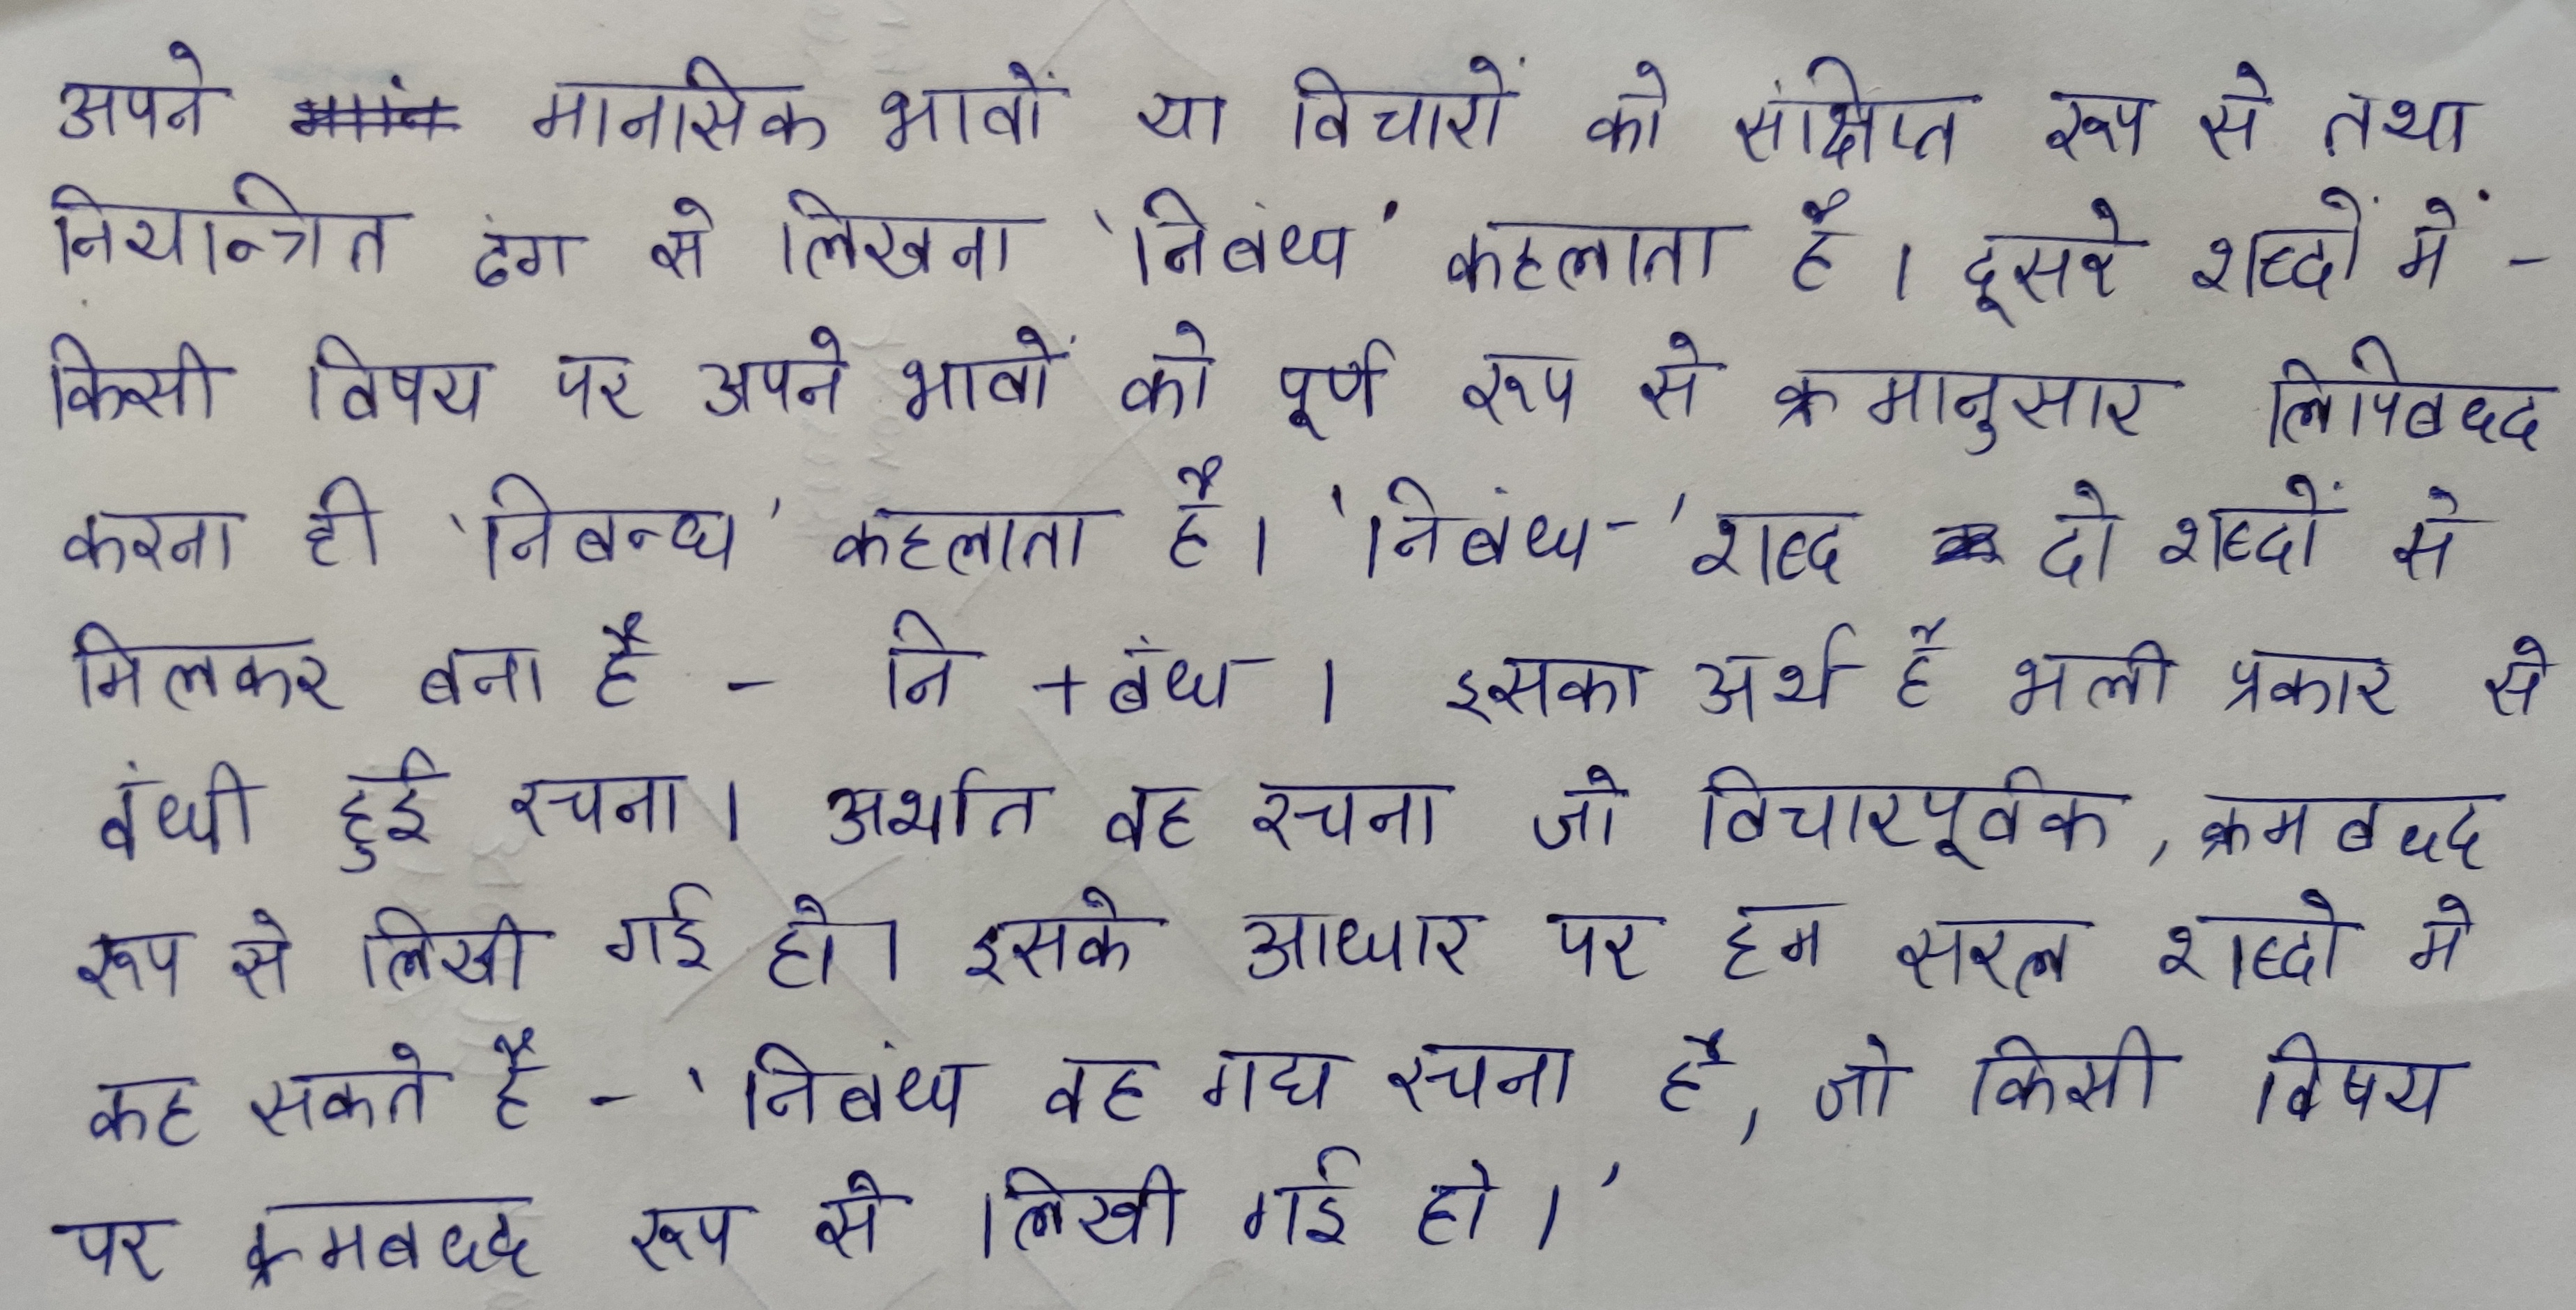 अपने मानसिक भावों या विचारों को संक्षिप्त रूप से तथा
नियन्त्रित ढंग से लिखना 'निबंध' कहलाता है । दूसरे शब्दों में -
किसी विषय पर अपने भावों को पूर्ण रूप से क्रमानुसार लिपिबध्द
करना ही 'निबन्ध' कहलाता है। 'निबंध-' शब्द दो शब्दों से
मिलकर बना है - नि + बंध । इसका अर्थ है भली प्रकार से
बंधी हुई रचना। अर्थात वह रचना जो विचारपूर्वक, क्रमबध्द
रूप से लिखी गई हो। इसके आधार पर हम सरल शब्दो मे
कह सकते है - 'निबंध वह गद्य रचना है, जो किसी विषय
पर क्रमबध्द रूप से लिखी गई हो।'